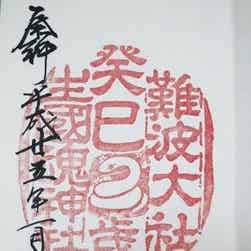 難波大社
癸巳歳
生國魂神社
平成廿五年一月